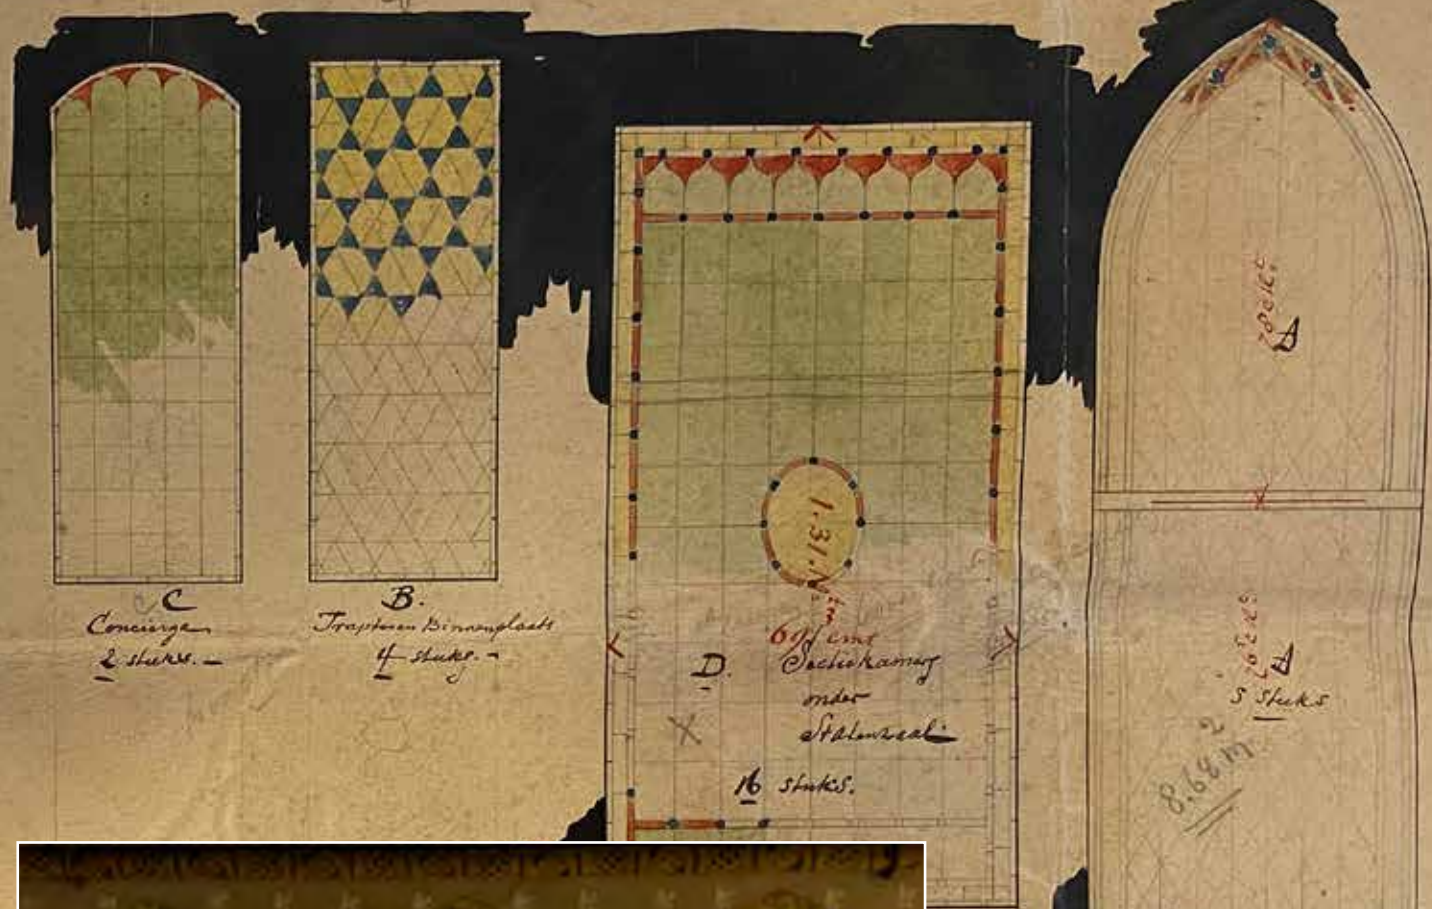 C
Concierge
2 stuks.-
B.
Trappen Binnenplaats
4 stuks.-
1.31.
69/ cms
D. Sectiekamers
onder
Statenzaal
16 stuks.
A
A
5 stuks
8.68 M.²